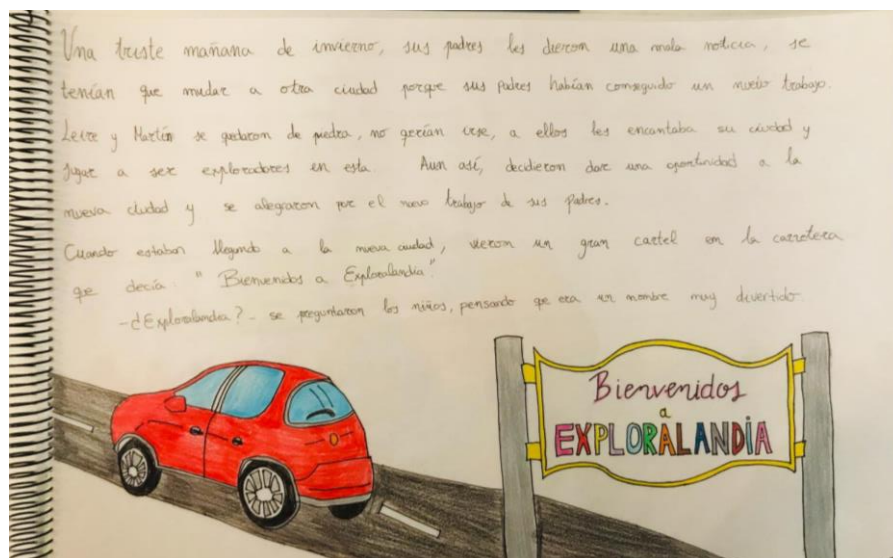 Una triste mañana de invierno, sus padres les dieron una mala noticia, se
tenían que mudar a otra ciudad porque sus padres habían conseguido un nuevo trabajo.
Leire y Martín se quedaron de piedra, no querían irse, a ellos les encantaba su ciudad y
jugar a ser exploradores en esta. Aun así, decidieron dar una oportunidad a la
nueva ciudad y se alegraron por el nuevo trabajo de sus padres.
Cuando estaban llegando a la nueva ciudad, vieron un gran cartel en la carretera
que decía: "Bienvenidos a Exploralandia".
-¿Exploralandia?- se preguntaron los niños, pensando que era un nombre muy divertido.
Bienvenidos
a
EXPLORALANDIA